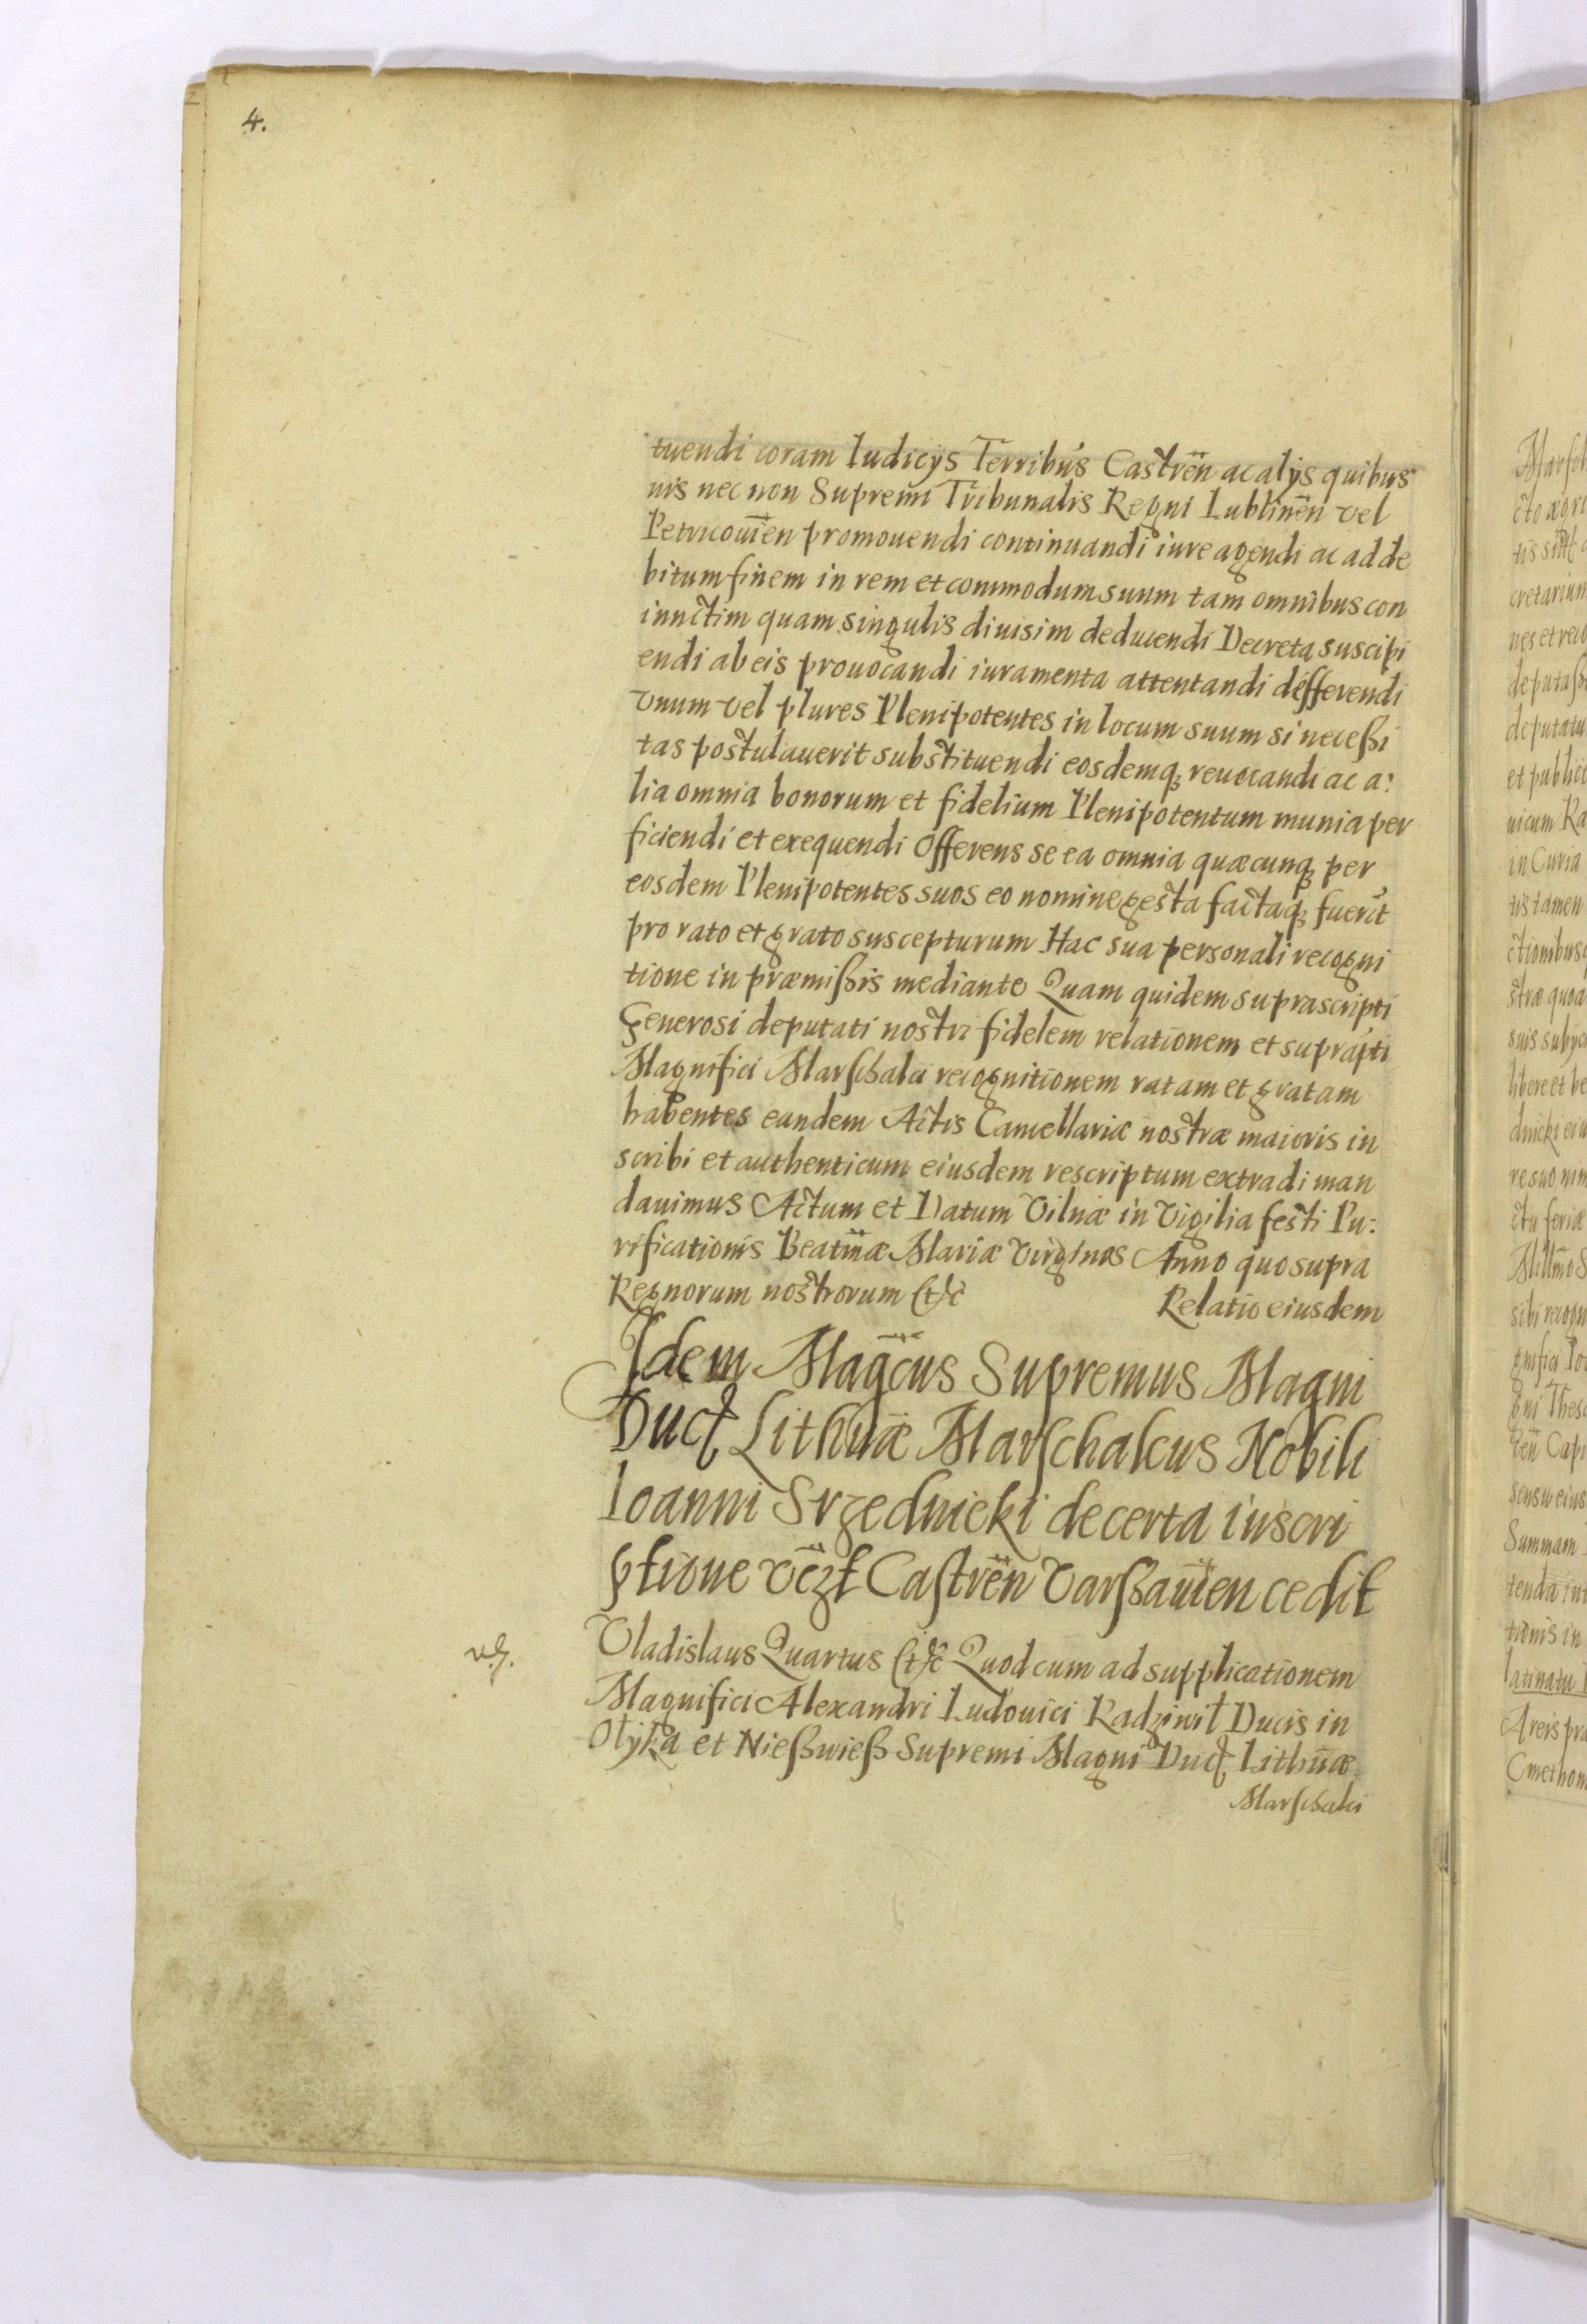 4.
tuendi coram Iudicÿs Terribus Castren̄ ac alÿs quibus
uis nec non Supremi Tribunalis Regni Lublinen̄ vel
Petricouien̄ promouendi continuandi iure agendi ac ad de
bitum finem in rem et commodum suum tam omnibus con
iunctim quam singulis diuisim deducendi Decreta suscipi
endi ab eis prouocandi iuramenta attentandi defferendi
vnum vel plures Plenipotentes in locum suum si neceßi
tas postulauerit substituendi eosdemq₃ reuocandi ac a:
lia omnia bonorum et fidelium Plenipotentum munia per
ficiendi et exequendi Offerens se ea omnia quæcunq₃ per
eosdem Plenipotentes suos eo nomine gesta factaq₃ fuerit
pro rato et grato suscepturum Hac sua personali recogni
tione in præmißis mediante Quam quidem suprascripti
Generosi deputati nostri fidelem relationem et suprapti
Magnifici Marschalci recognitionem ratam et gratam
habentes eandem Actis Cancellariæ nostræ maioris in
scribi et authenticum eiusdem rescriptum extradi man
dauimus Actum et Datum Vilnæ in Vigilia festi Pu:
rificationis Beatmǣ Mariæ Virginis Anno quo supra
Regnorum nostrorum (t)c̄ Relatio eiusdem
Idem Magc̄us Supremus Magni
Duc̨ Lithuǣ Marschalcus Nobili
Ioanni Srzednicki de certa inscri
ptione vc̄zt Castren̄ Varßauien̄ cedit
V.G.
Vladislaus Quartus (t)c̄ Quod cum ad supplicationem
Magnifici Alexandri Ludouici Radziwił Ducis in
Ołÿka et Nießwieß Supremi Magni Duc̨ Lithuǣ
Marschalci